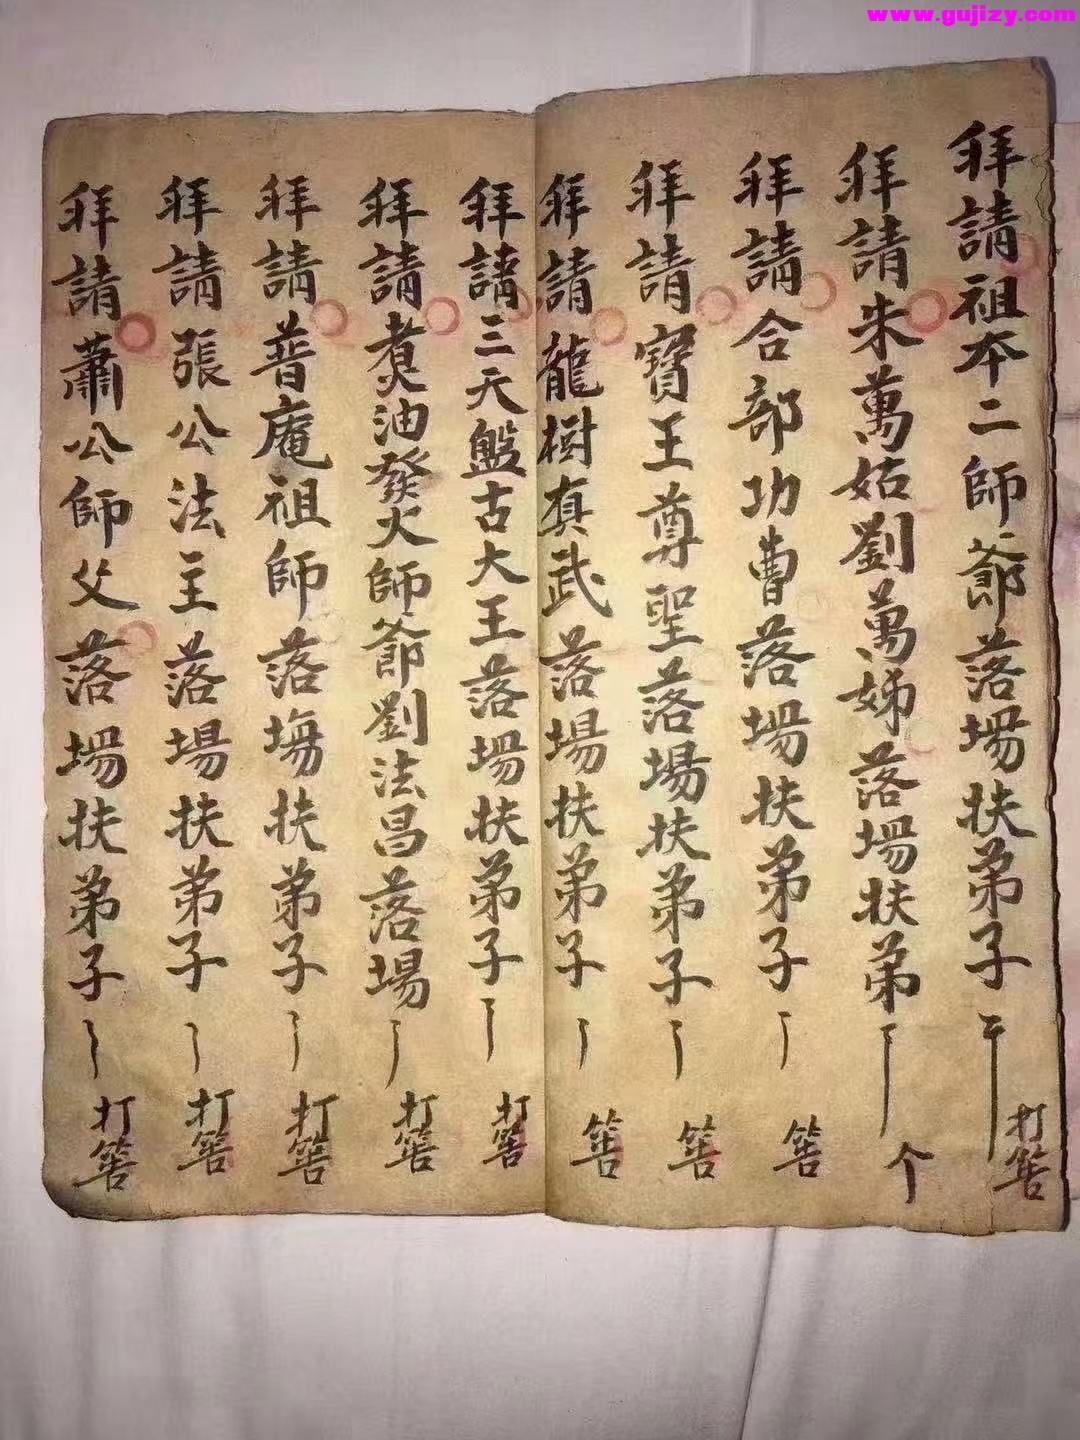 www.gujizy.com
拜請祖本二師爺落場扶弟子
打筶
拜請朱萬姑劉萬姊落場扶弟
个
拜請合部功曹落場扶弟子
筶
拜請寶王尊聖落場扶弟子
筶
拜請龍樹真武落場扶弟子
筶
拜請三天盤古大王落場扶弟子
打筶
拜請煑油發火師爺劉法昌落場
打筶
拜請普庵祖師落塲扶弟子
打筶
拜請張公法主落場扶弟子
打筶
拜請蕭公師父落場扶弟子
打筶